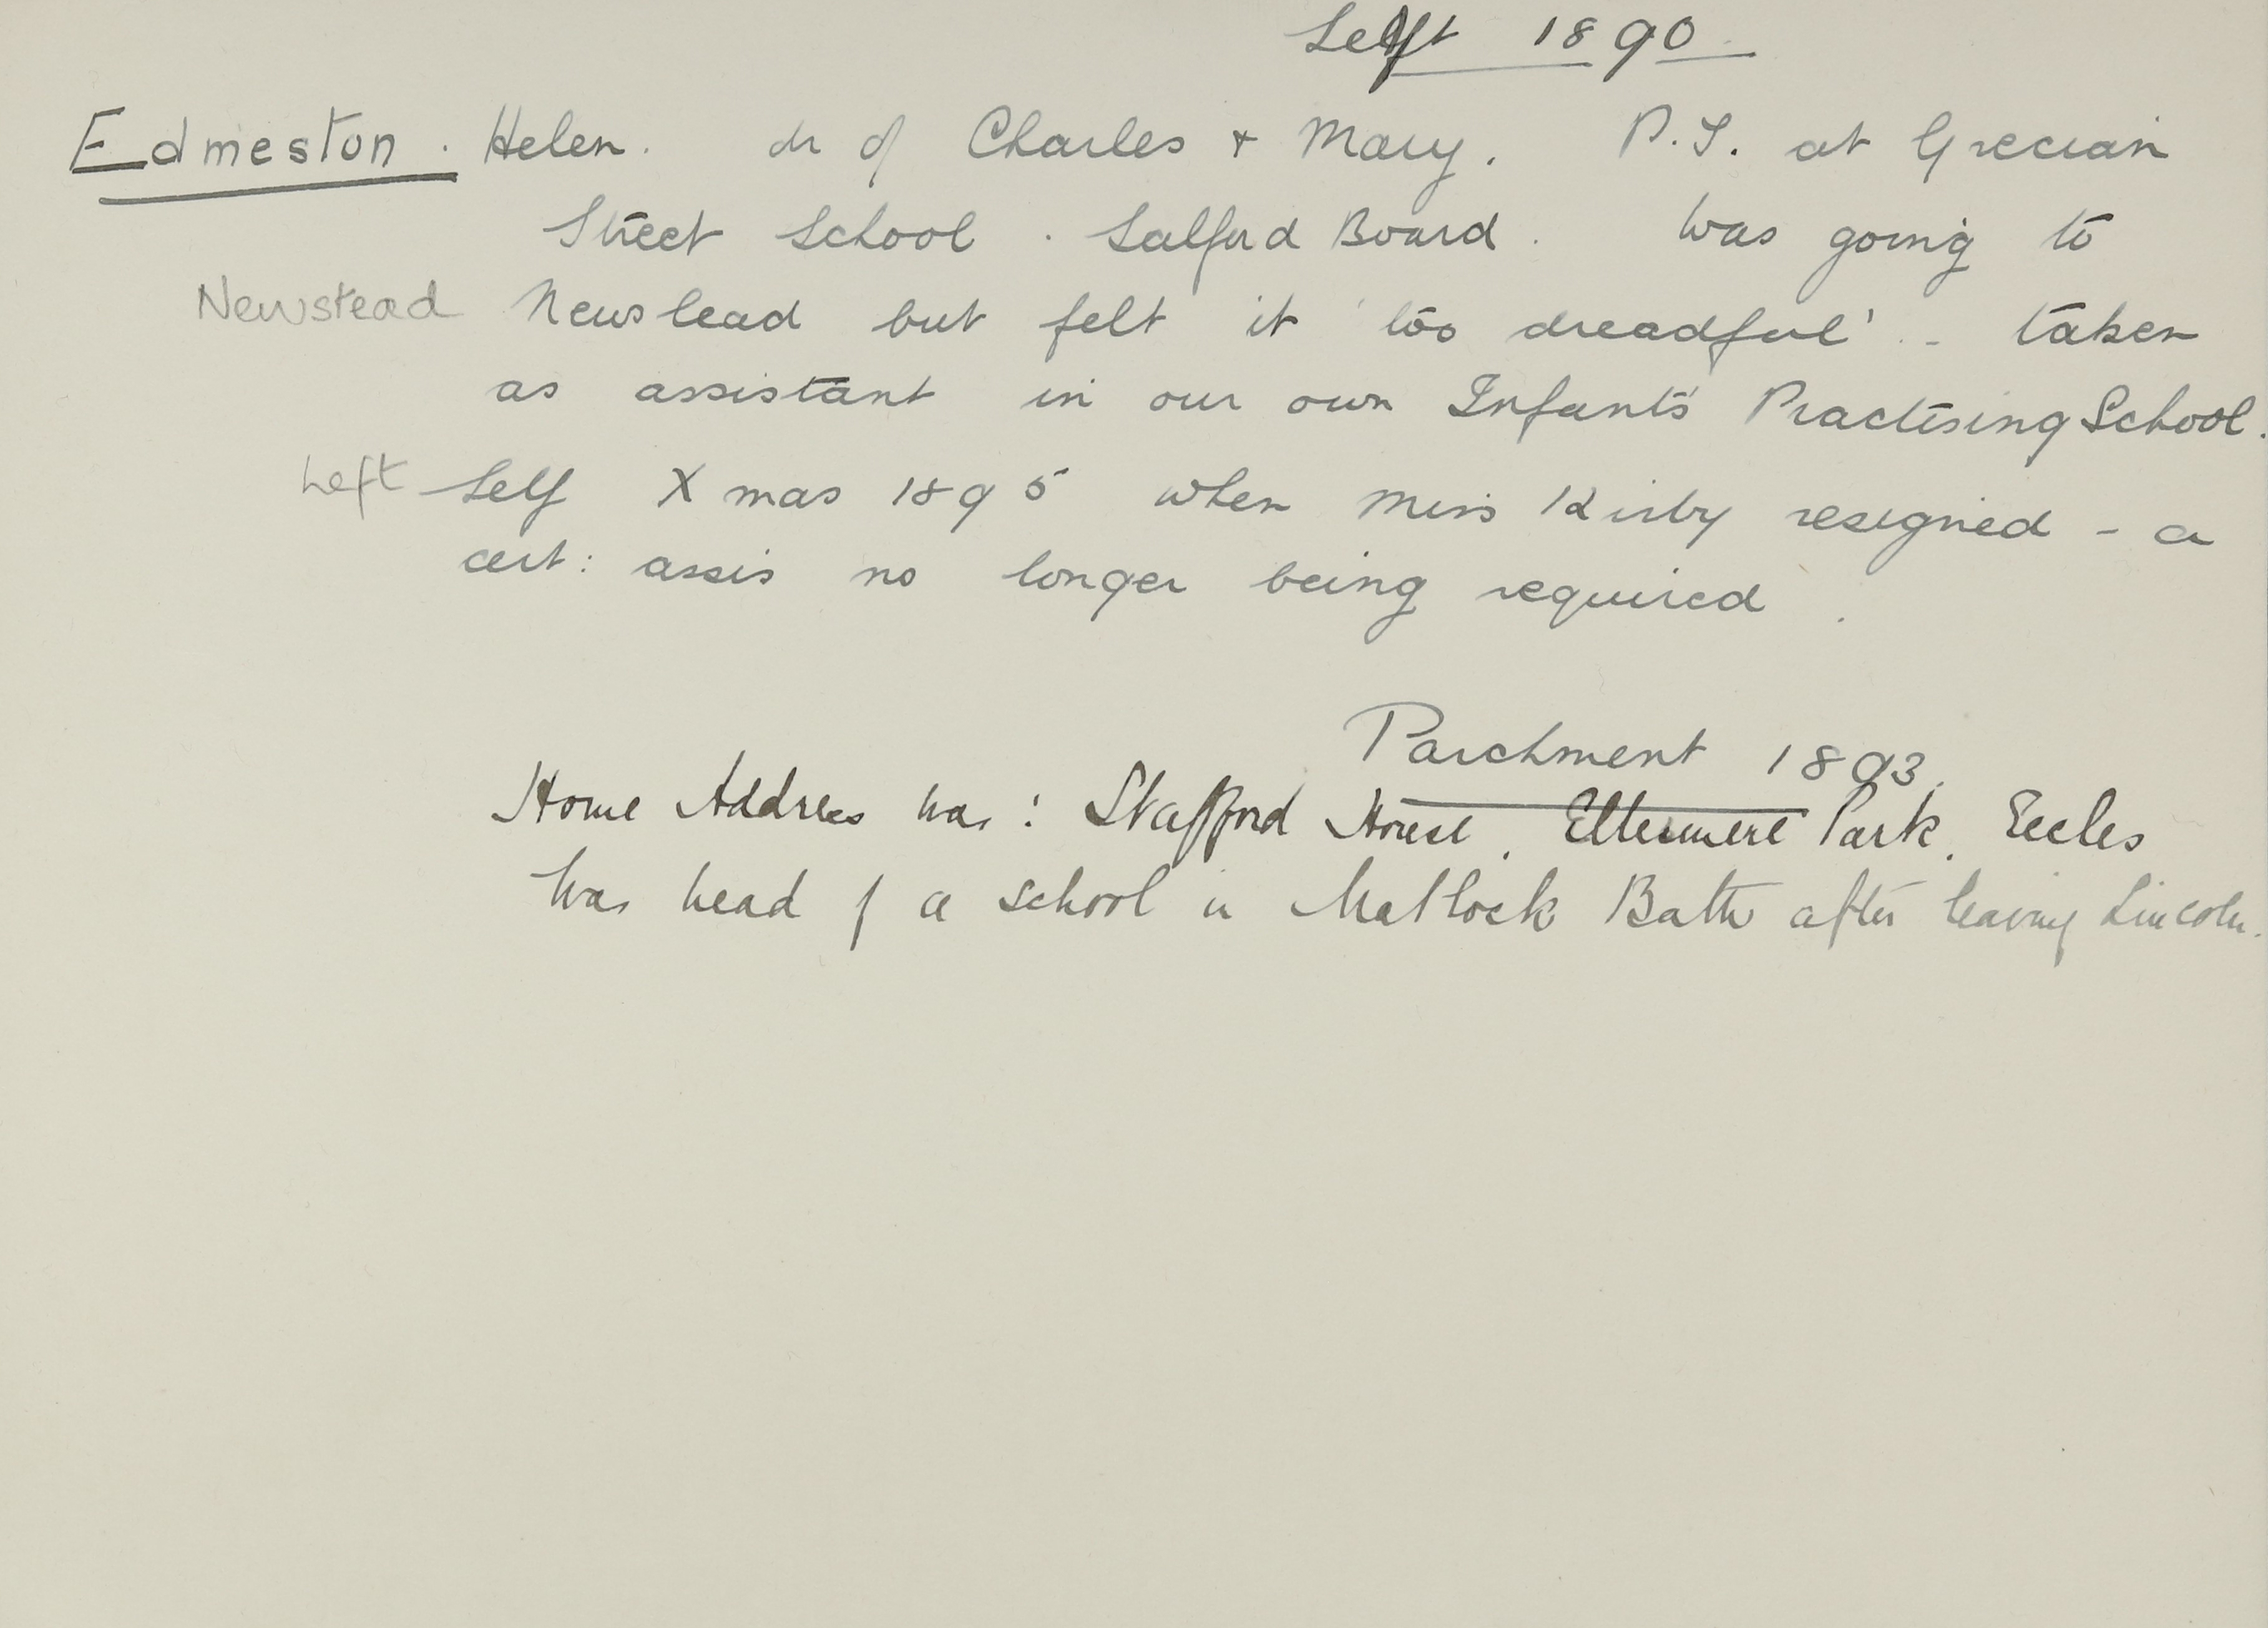 Left 1890
Edmeston. Helen. dr of Charles & Mary. P.T. at Grecian
Street School. Salford Board. Was going to
Newstead Newslead but felt it 'too dreadful' - taken
as assistant in our own Infants Practising School.
Left Self Xmas 1895 when Miss Kirby resigned - a
cert: assis no longer being required.
Parchment 1893.
Home Address was: Stafford House, Ellesmere Park, Eccles
Was head of a school in Matlock Bath after leaving Lincoln.